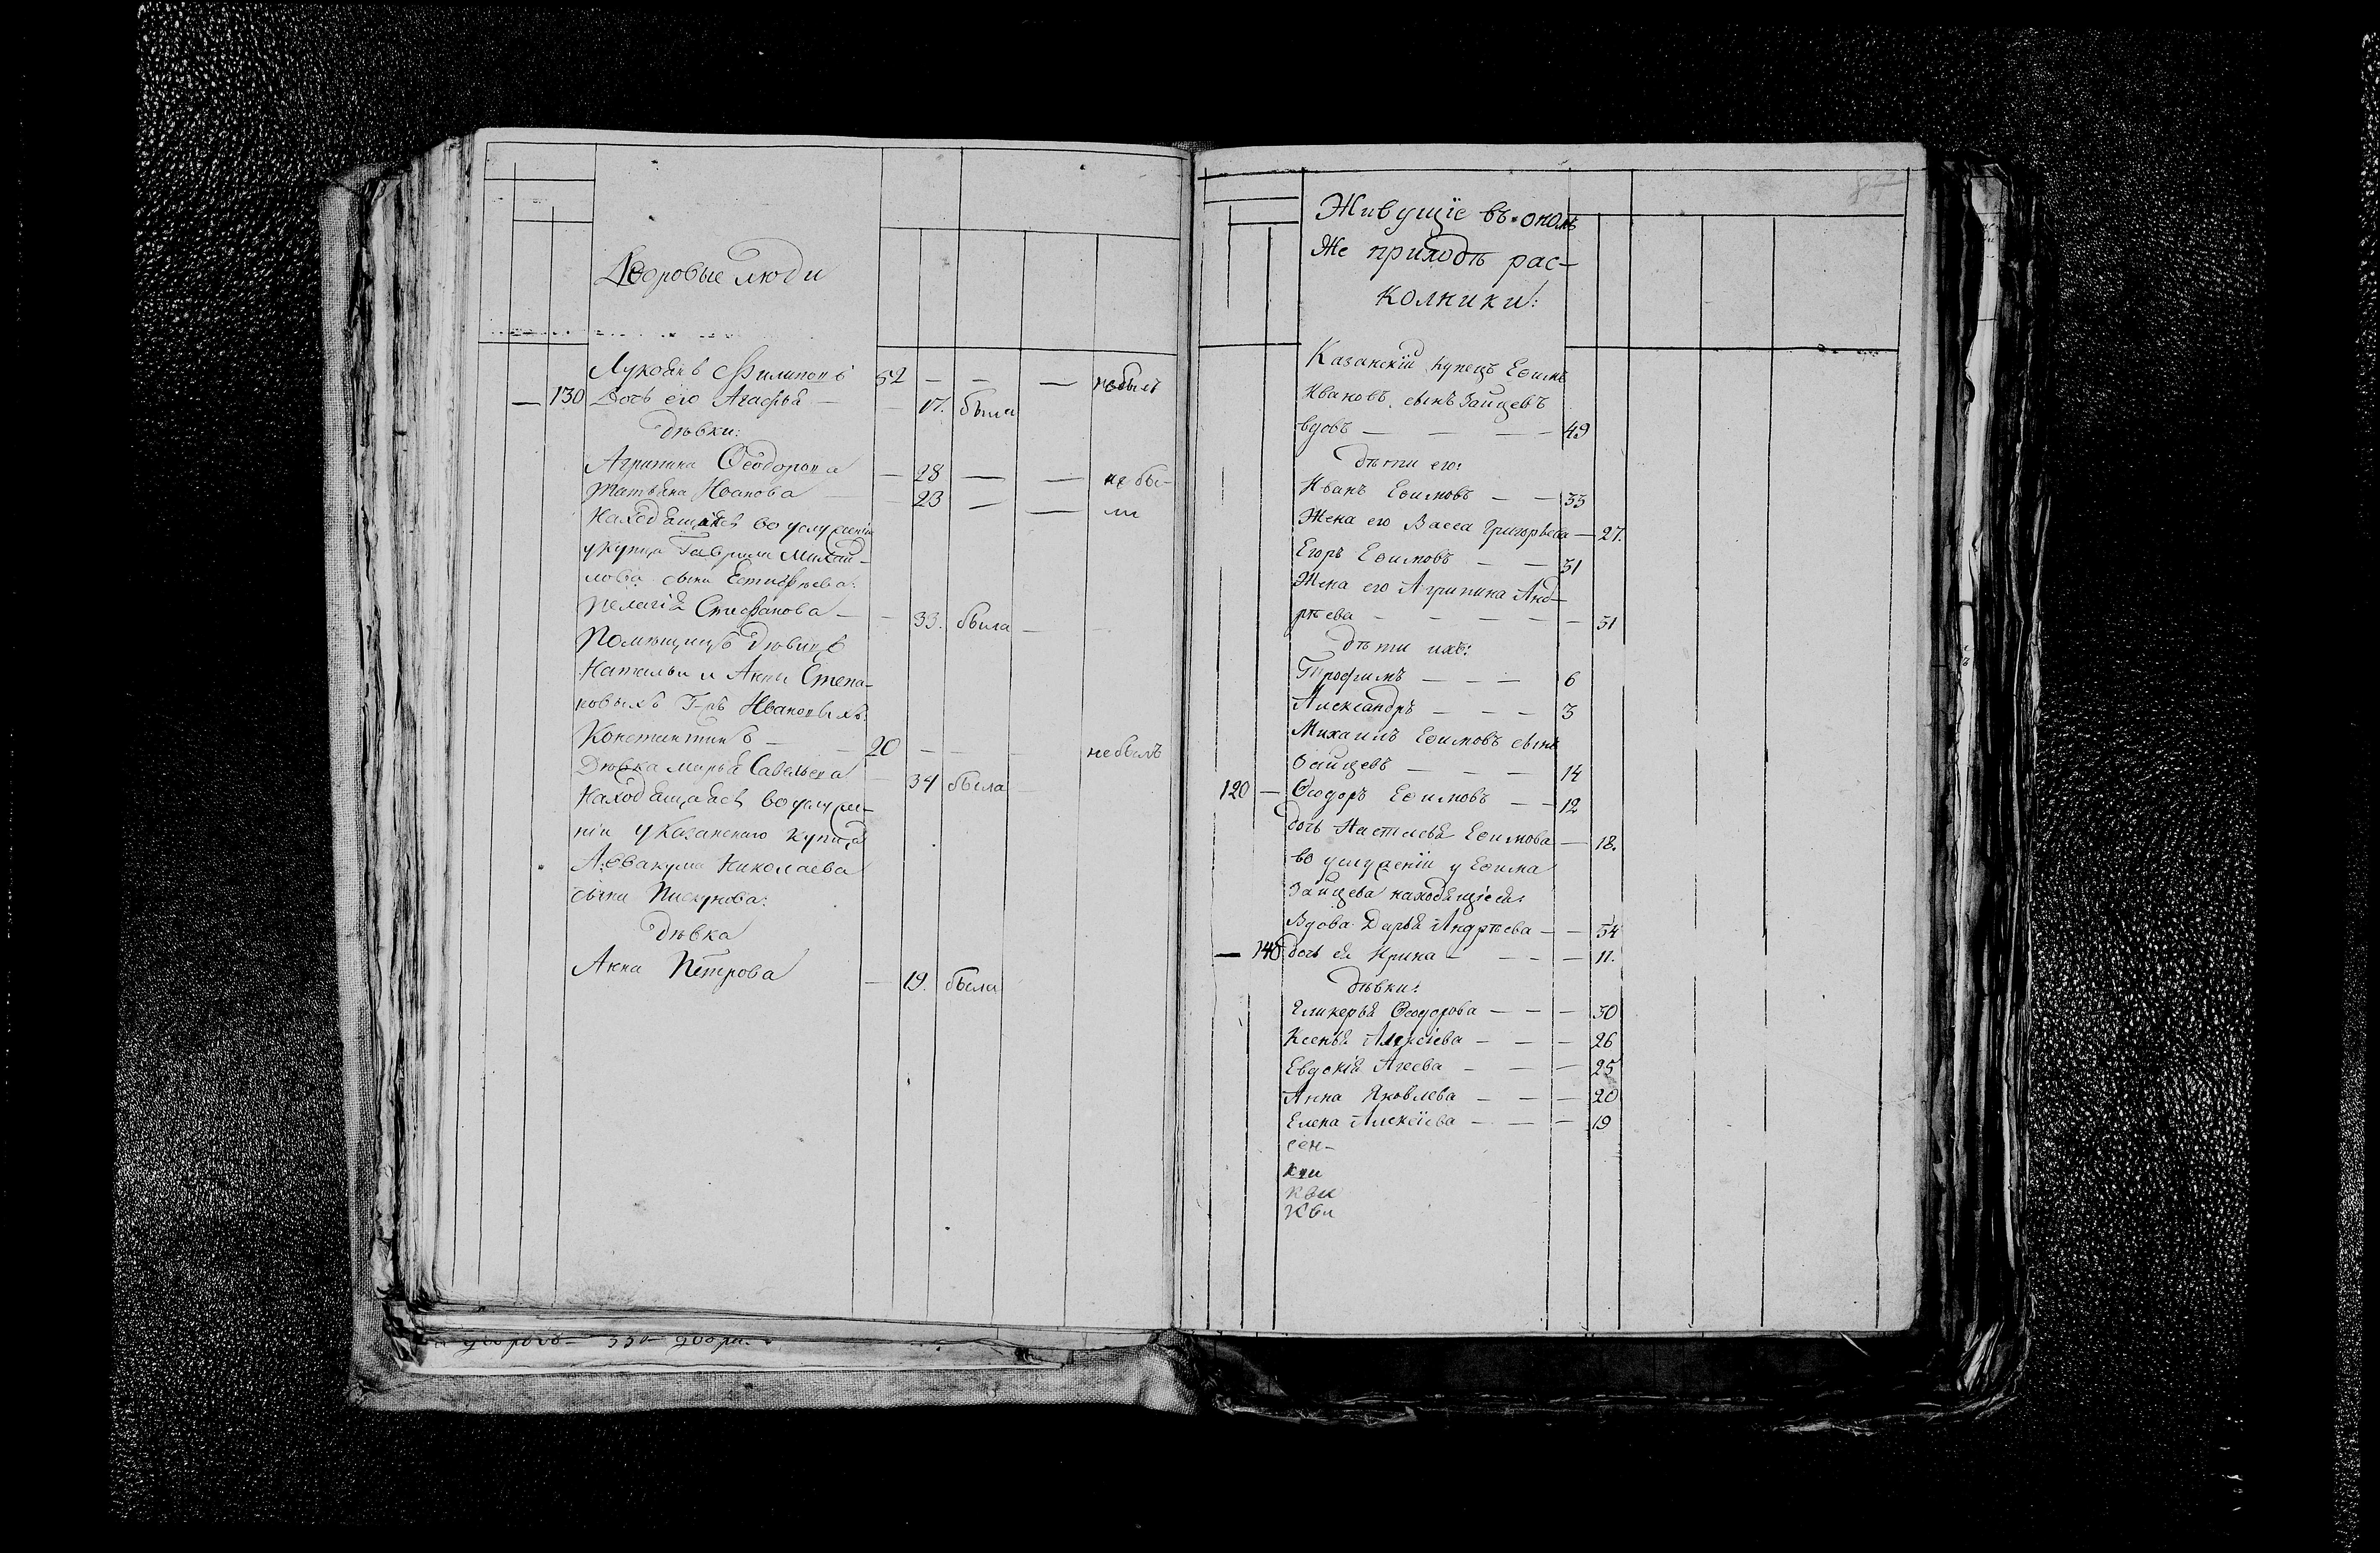 Дворовые люди
Лукоянъ Филиповъ 52 — — — небылъ
— 130 Дочь его Агафья — — 17. была
дѣвки:
Агрипина Ѳеодорова — 28 — — не бы-
Татьяна Иванова — 23 — — ли
Находящаяся во услуженіи
у купца Гаврила Михай-
лова сына Естифѣева:
Пелагія Стефанова — — 33. была —
Помѣщицъ Дѣвицъ
Натальи и Анны Степа-
новыхъ Г-жъ Ивановыхъ:
Константинъ — — 20 — — — небылъ
Дѣвка Марья Савельева — 34 была
Находящаяся во услуже-
ніи у Казанскаго купца
Аввакума Николаева
сына Пискунова:
Дѣвка
Анна Петрова — 19. была
Живущіе въ ономъ
же приходѣ рас-
колники:
Казанскій купецъ Ефимъ
Ивановъ сынъ Зайцевъ
вдовъ — — — 49
дѣти его:
Иванъ Ефимовъ — — 33
Жена его Васса Григорьева — 27.
Егоръ Ефимовъ — — 31
Жена его Агрипина Анд-
рѣева — — — — — 31
дѣти ихъ:
Трофимъ — — — 6
Александръ — — — 3
Михаилъ Ефимовъ сынъ
Зайцевъ — — — 14
120 — Ѳеодоръ Ефимовъ — — 12
дочь Настасья Ефимова — 18.
во услуженіи у Ефима
Зайцева находящіеся:
Вдова Дарья Андрѣева — — 54
— 140 дочь ея Ирина — — — — 11.
дѣвки:
Гликерья Ѳеодорова — — — 30
Ксенья Алексіева — — — 26
Евдокія Агеева — — — 25
Анна Яковлева — — — 20
Елена Алексіева — — — 19